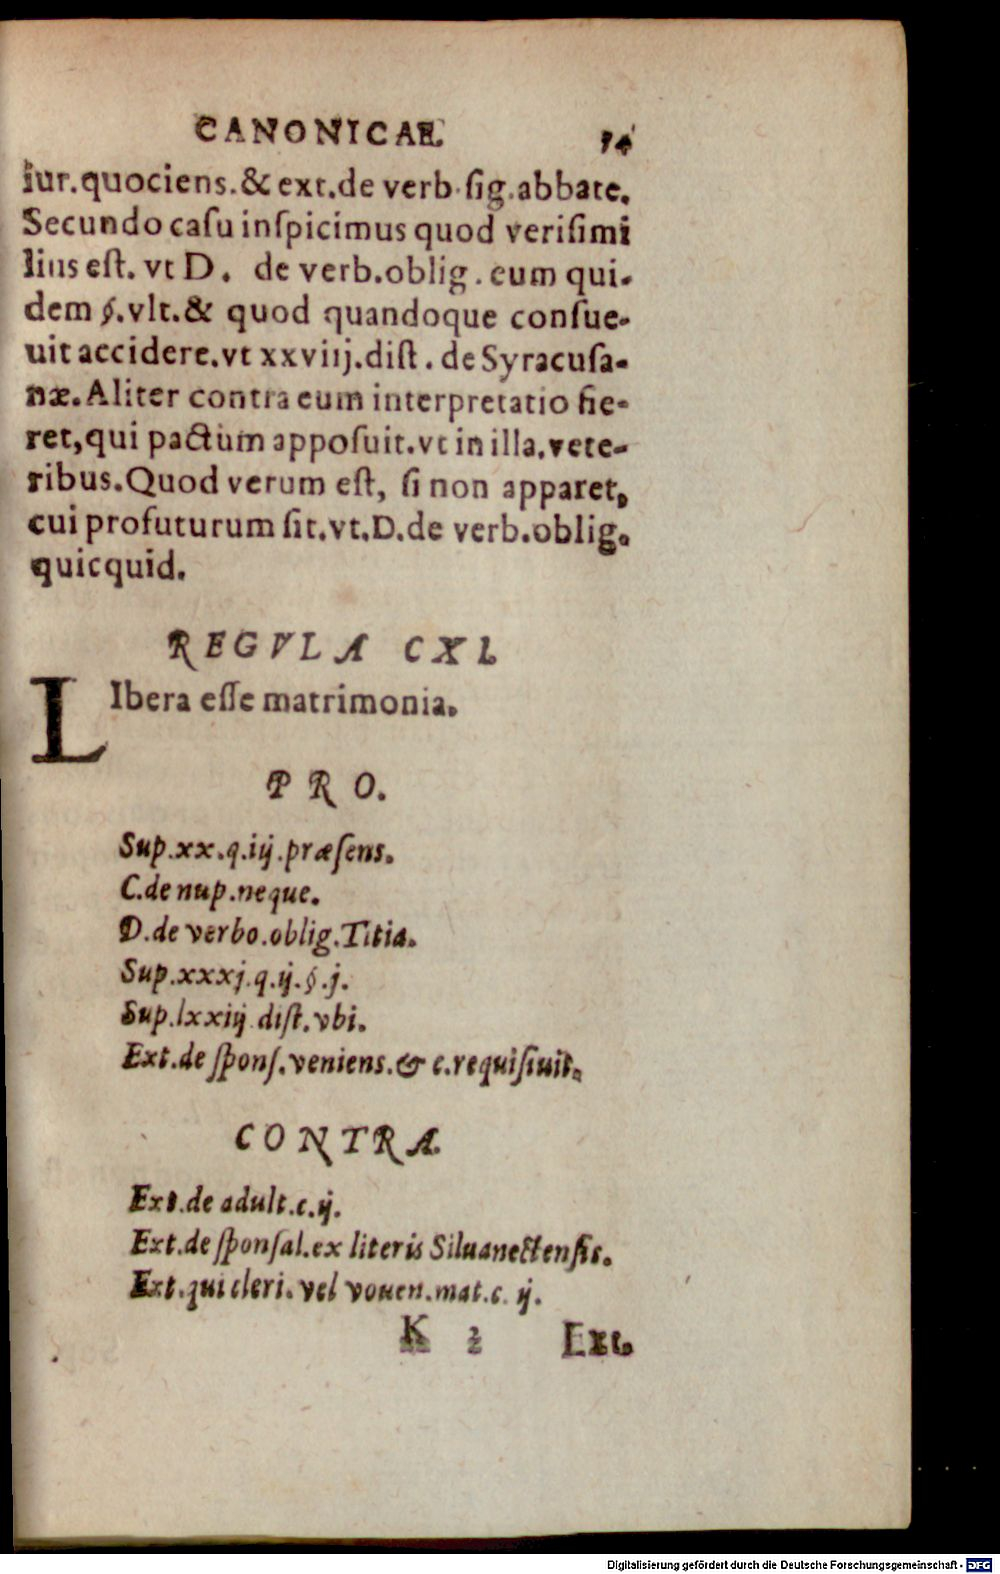 CANONICAE. 74
iur.quociens.& ext.de verb.ſig.abbate.
Secundo caſu inſpicimus quod veriſimi
lius eſt. vt D. de verb.oblig.eum qui-
dem §.vlt.& quod quandoque conſue-
uit accidere.vt xxviij.diſt. de Syracuſa-
næ.Aliter contra eum interpretatio fie-
ret,qui pactum appoſuit.vt in illa.vete-
ribus.Quod verum eſt, ſi non apparet,
cui profuturum ſit.vt.D.de verb.oblig.
quicquid.
REGVLA CXL
LIbera eſſe matrimonia.
PRO.
Sup.xx.q.iij.præſens.
C.de nup.neque.
D.de verbo.oblig.Titia.
Sup.xxxj.q.ij.§.j.
Sup.lxxiij diſt.vbi.
Ext.de ſponſ.veniens.& c.requiſiuit.
CONTRA.
Ext.de adult.c.ij.
Ext.de ſponſal.ex literis Siluanectenſis.
Ext.qui cleri.vel vouen.mat.c. ij.
K 2 Ext.
Digitalisierung gefördert durch die Deutsche Forschungsgemeinschaft - DFG